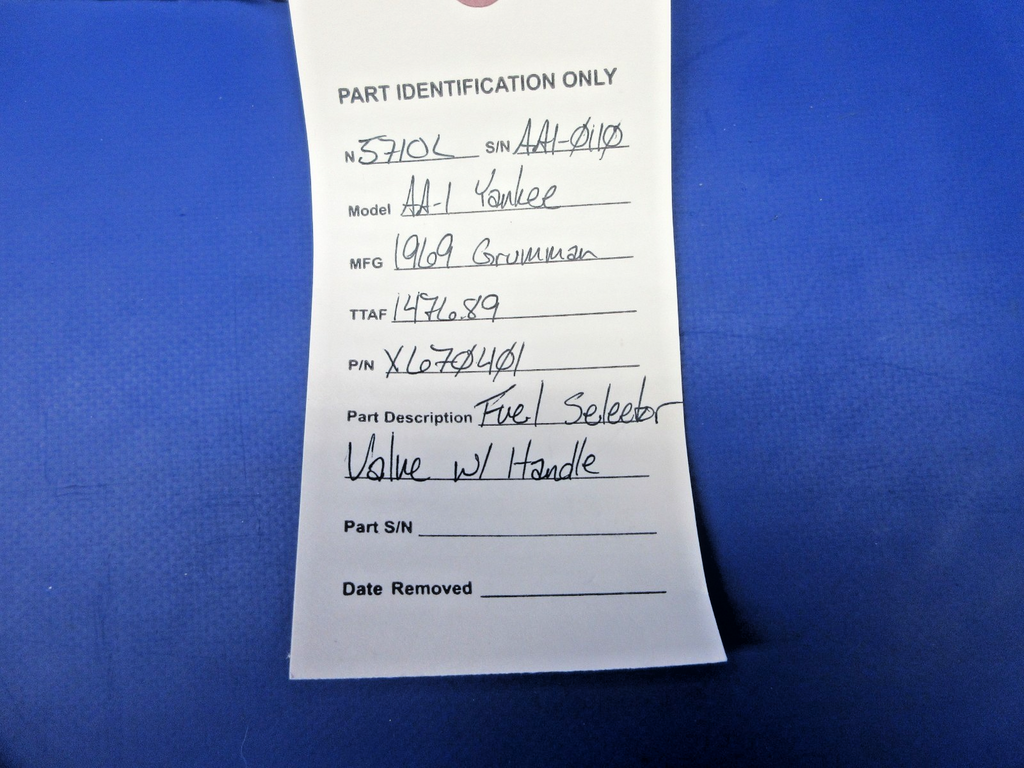 PART IDENTIFICATION ONLY
N 5710L S/N AA1-0110
Model AA-1 Yankee
MFG 1969 Grumman
TTAF 1476.89
P/N X670401
Part Description Fuel Selector
Valve w/ Handle
Part S/N
Date Removed